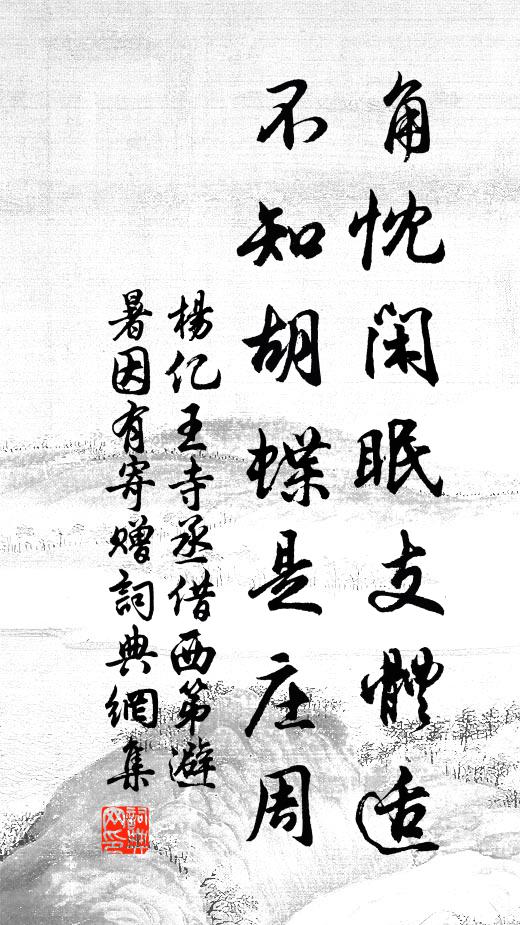 角忱闲眠支體适
不知胡蝶是庄周
楊亿王寺丞借西第避
暑因有寄赠詞典網集